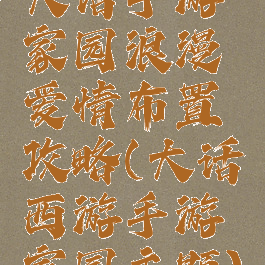 大话手游
家园浪漫
爱情布置
攻略(大话
西游手游
家园主题)